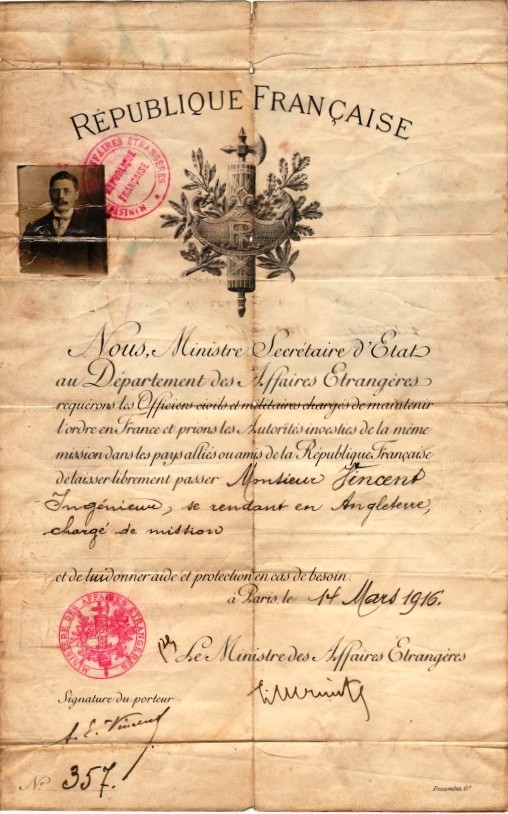 RÉPUBLIQUE FRANÇAISE
AFFAIRES ÉTRANGÈRES
MINISTÈRE
RÉPUBLIQUE
FRANÇAISE
RF
Nous, Ministre Secrétaire d'Etat
au Département des Affaires Etrangères
requérons les Officiers civils et militaires chargés de maintenir
l'ordre en France et prions les Autorités investies de la même
mission dans les pays alliés ou amis de la République Française
de laisser librement passer Monsieur Vincent
Ingénieur, se rendant en Angleterre,
chargé de mission
et de lui donner aide et protection en cas de besoin.
à Paris, le 14 Mars 1916.
MINISTÈRE DES AFFAIRES ETRANGÈRES
Le Ministre des Affaires Etrangères
Signature du porteur
A. E. Vincent
No 357.
Devambez, Gr.